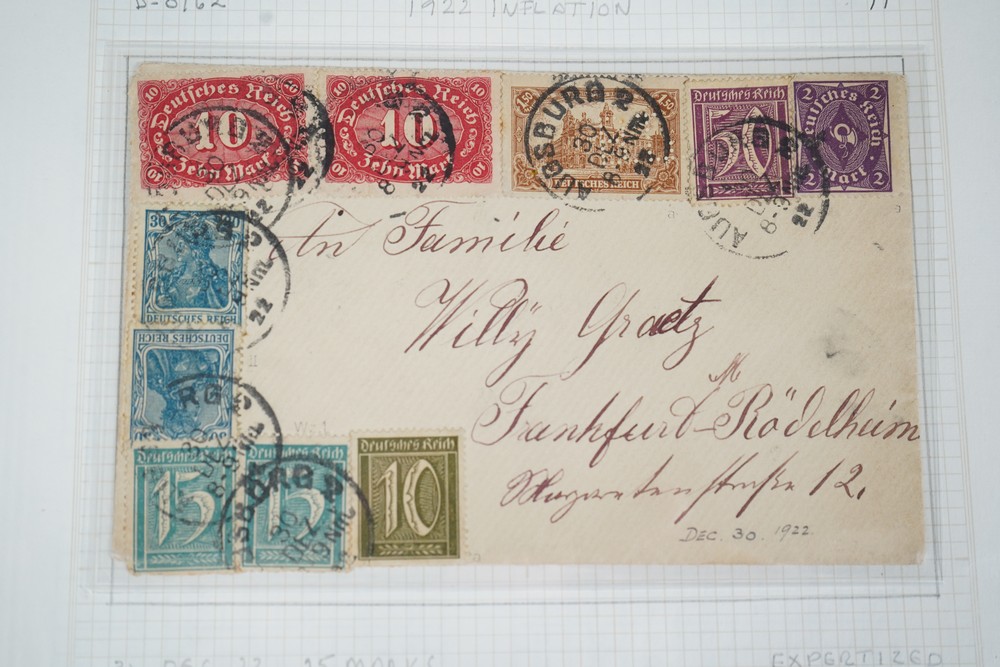 D-8162 1922 INFLATION
10 10 Deutsches Reich 10 Zehn Mark 10 10
10 10 Deutsches Reich 10 Zehn Mark 10 10
1,50 1,50 DEUTSCHES REICH
Deutsches Reich 50
2 2 Deutsches Reich Mark 2 2
AUGSBURG 2
30
DEZ
22
An Familie
30 DEUTSCHES REICH
Willy Graetz
DEUTSCHES REICH
Frankfurt a/M Rödelheim
Deutsches Reich 15
Deutsches Reich 15
Deutsches Reich 10
Margaretenstraße 12.
DEC. 30. 1922
DEC 22 25 MARKS EXPERTIZED